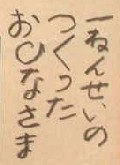 一ねんせいの
つくった
おひなさま